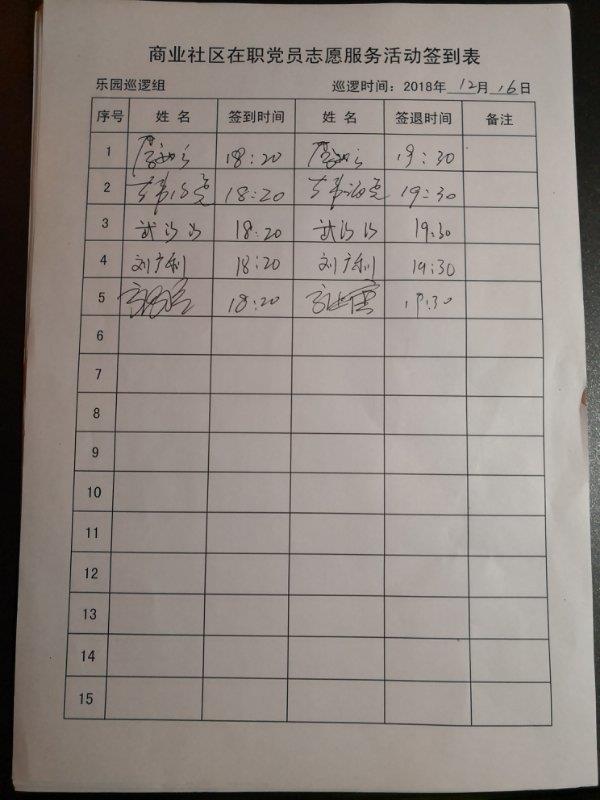 商业社区在职党员志愿服务活动签到表
乐园巡逻组 巡逻时间：2018年 12月 16日
序号 姓名 签到时间 姓名 签退时间 备注
1 18:20 19:30
2 18:20 19:30
3 18:20 19:30
4 刘广利 18:20 刘广利 19:30
5 18:20 19:30
6
7
8
9
10
11
12
13
14
15